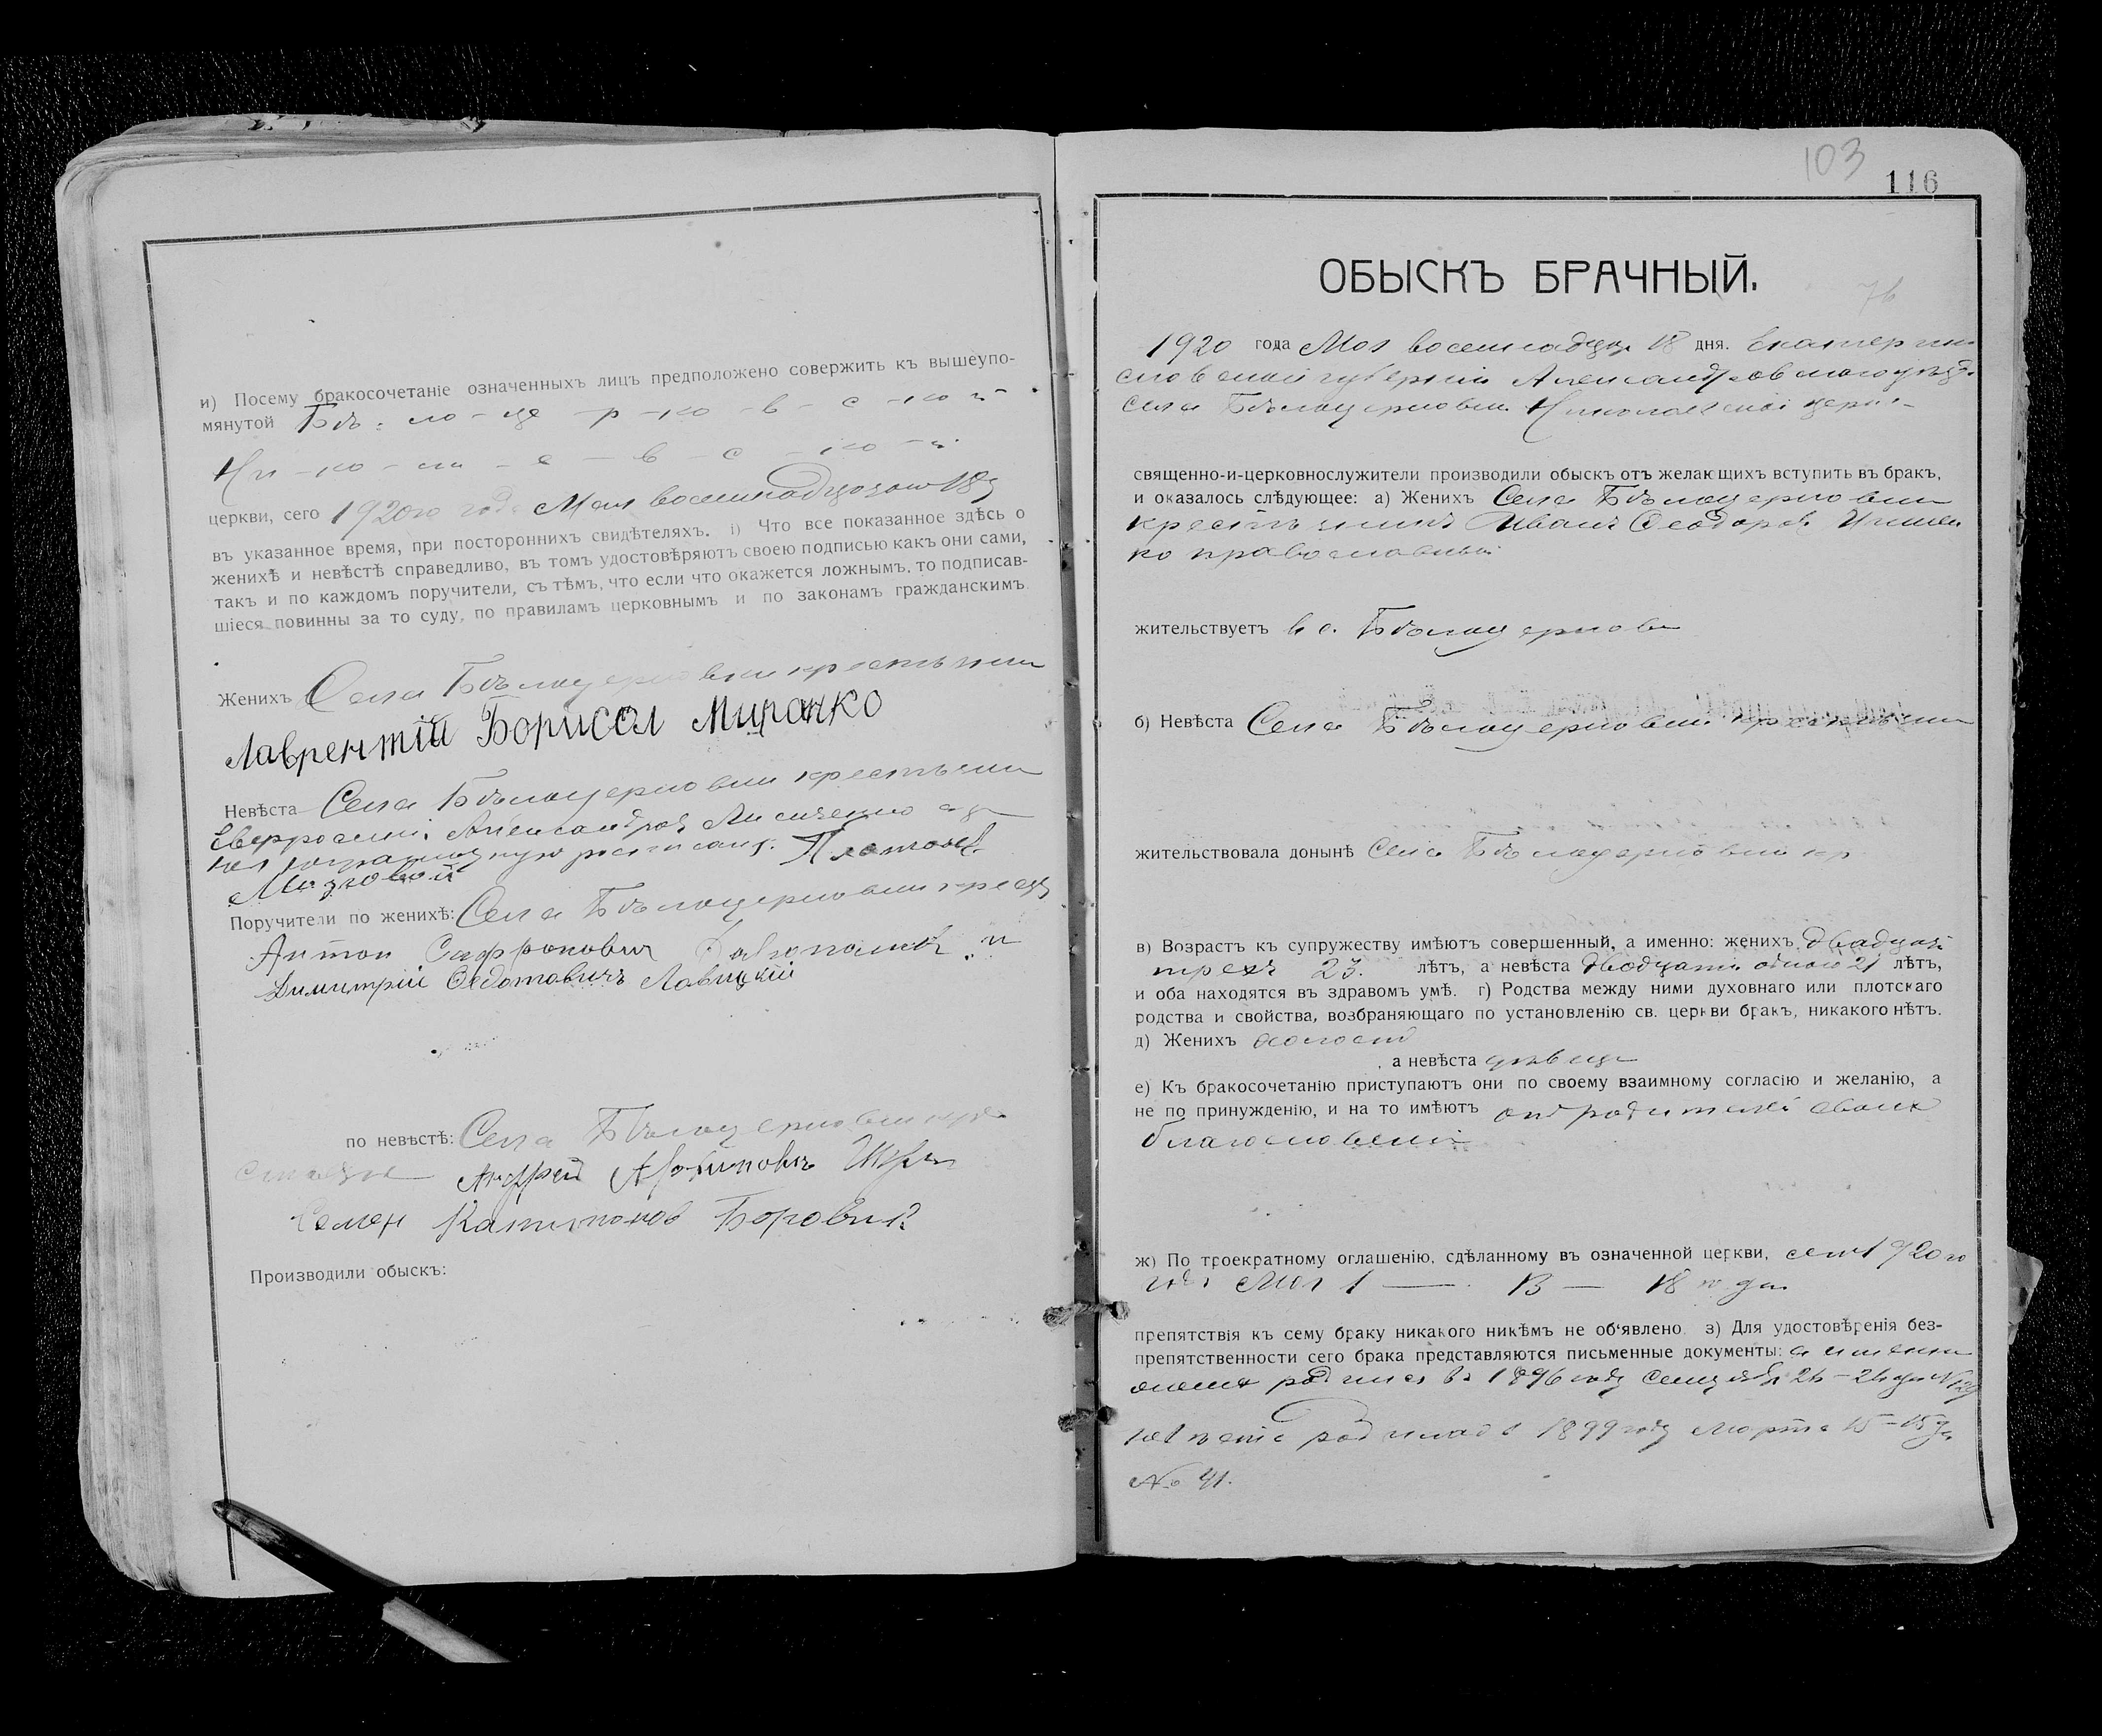 и) Посему бракосочетаніе означенныхъ лицъ предположено совержить къ вышеупо-
мянутой Бѣ - ло - це - р - ко - в - с - ко й -
Ни - ко - - е - в - с - ко - й
церкви, сего 1920го года Мая восемнадцатого 18
въ указанное время, при постороннихъ свидѣтеляхъ. і) Что все показанное здѣсь о
женихѣ и невѣстѣ справедливо, въ томъ удостовѣряютъ своею подписью какъ они сами,
такъ и по каждомъ поручители, съ тѣмъ, что если что окажется ложнымъ, то подписав-
шіеся повинны за то суду, по правиламъ церковнымъ и по законамъ гражданскимъ
Женихъ Села Бѣлоцерковки крестьянин
Лаврентій Борисол Миранко
Невѣста Села Бѣлоцерковки крестьян
Александров
неграмотную росписал Платонъ
Мозговой
Поручители по женихѣ: Села Бѣлоцерковки крест
Антон Сафронович и
Димитрій Ѳедотовичъ Лавицкій
по невѣстѣ: Села Бѣлоцерковки кре
Андрей Архиповъ
Семен Капитонов Боровик
Производили обыскъ:
103
116
ОБЫСКЪ БРАЧНЫЙ.
76
1920 года Мая восемнадцат 18 дня. Екатерино
славской губерніи Александровского уѣзда
села Бѣлоцерковки Николаевской церкв
священно-и-церковнослужители производили обыскъ отъ желающихъ вступить въ бракъ,
и оказалось слѣдующее: а) Женихъ Села Бѣлоцерковки
крестьянинъ Иванъ Ѳеодоров
ко православный
жительствуетъ в с. Бѣлоцерковк
б) Невѣста Села Бѣлоцерковки крестьян
жительствовала донынѣ Села Бѣлоцерковки кр
в) Возрастъ къ супружеству имѣютъ совершенный, а именно: женихъ двадцат
трехъ 23. лѣтъ, а невѣста двадцати одной 21 лѣтъ,
и оба находятся въ здравомъ умѣ. г) Родства между ними духовнаго или плотскаго
родства и свойства, возбраняющаго по установленію св. церкви бракъ, никакого нѣтъ.
д) Женихъ холостъ
а невѣста дѣвица
е) Къ бракосочетанію приступаютъ они по своему взаимному согласію и желанію, а
не по принужденію, и на то имѣютъ от родителей своих
благословеніе
ж) По троекратному оглашенію, сдѣланному въ означенной церкви, сего 1920го
года Мая 1 — 13 — 18 го дня
препятствія къ сему браку никакого никѣмъ не об'явлено з) Для удостовѣренія без-
препятственности сего брака представляются письменные документы: а именно
жених родился в 1896 году Сентября 24 - 24 дня № 129
невѣста родилась 1899 году Марта 15 - 15 дн
№ 41.